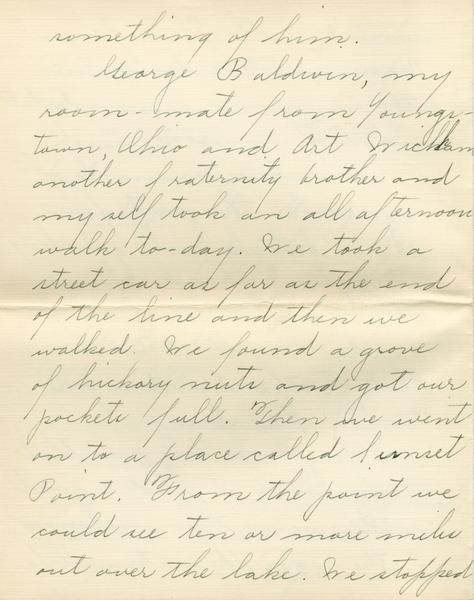 something of him.
George Baldwin, my
room-mate from Youngs-
town, Ohio and Art
another fraternity brother and
my self took an all afternoon
walk to-day. We took a
street car as far as the end
of the line and then we
walked. We found a grove
of hickory nuts and got our
pockets full. Then we went
on to a place called Sunset
Point. From the point we
could see ten or more miles
out over the lake. We stopped